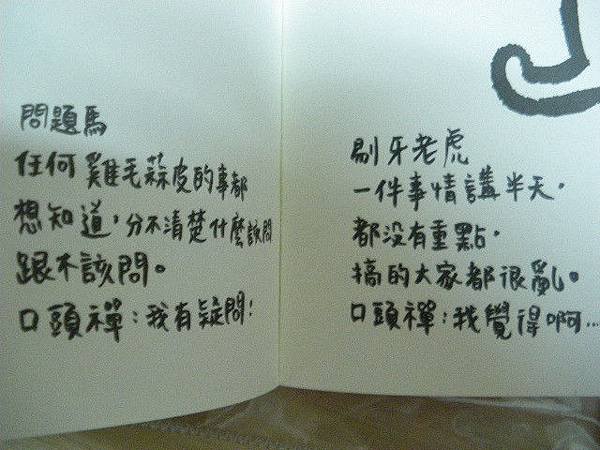 問題馬
任何雞毛蒜皮的事都
想知道,分不清楚什麼該問
跟不該問。
口頭禪:我有疑問!
剔牙老虎
一件事情講半天,
都没有重點,
搞的大家都很亂。
口頭禪:我覺得啊...